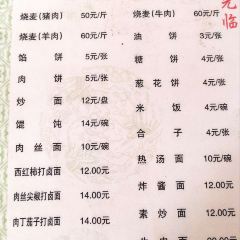 烧麦(猪肉) 50元/斤
烧麦(羊肉) 60元/斤
馅饼 5元/张
肉饼 5元/张
炒面 12元/盘
馄饨 14元/碗
肉丝面 10元/碗
西红柿打卤面 12.00元
肉丝尖椒打卤面 14.00元
肉丁茄子打卤面 14.00元
光临
烧麦(牛肉) 60元/
油饼 3元/张
糖饼 4元/张
葱花饼 4元/张
米饭 4元/碗
合子 4元/张
热汤面 10元/碗
炸酱面 12.00元
素炒面 12.00元